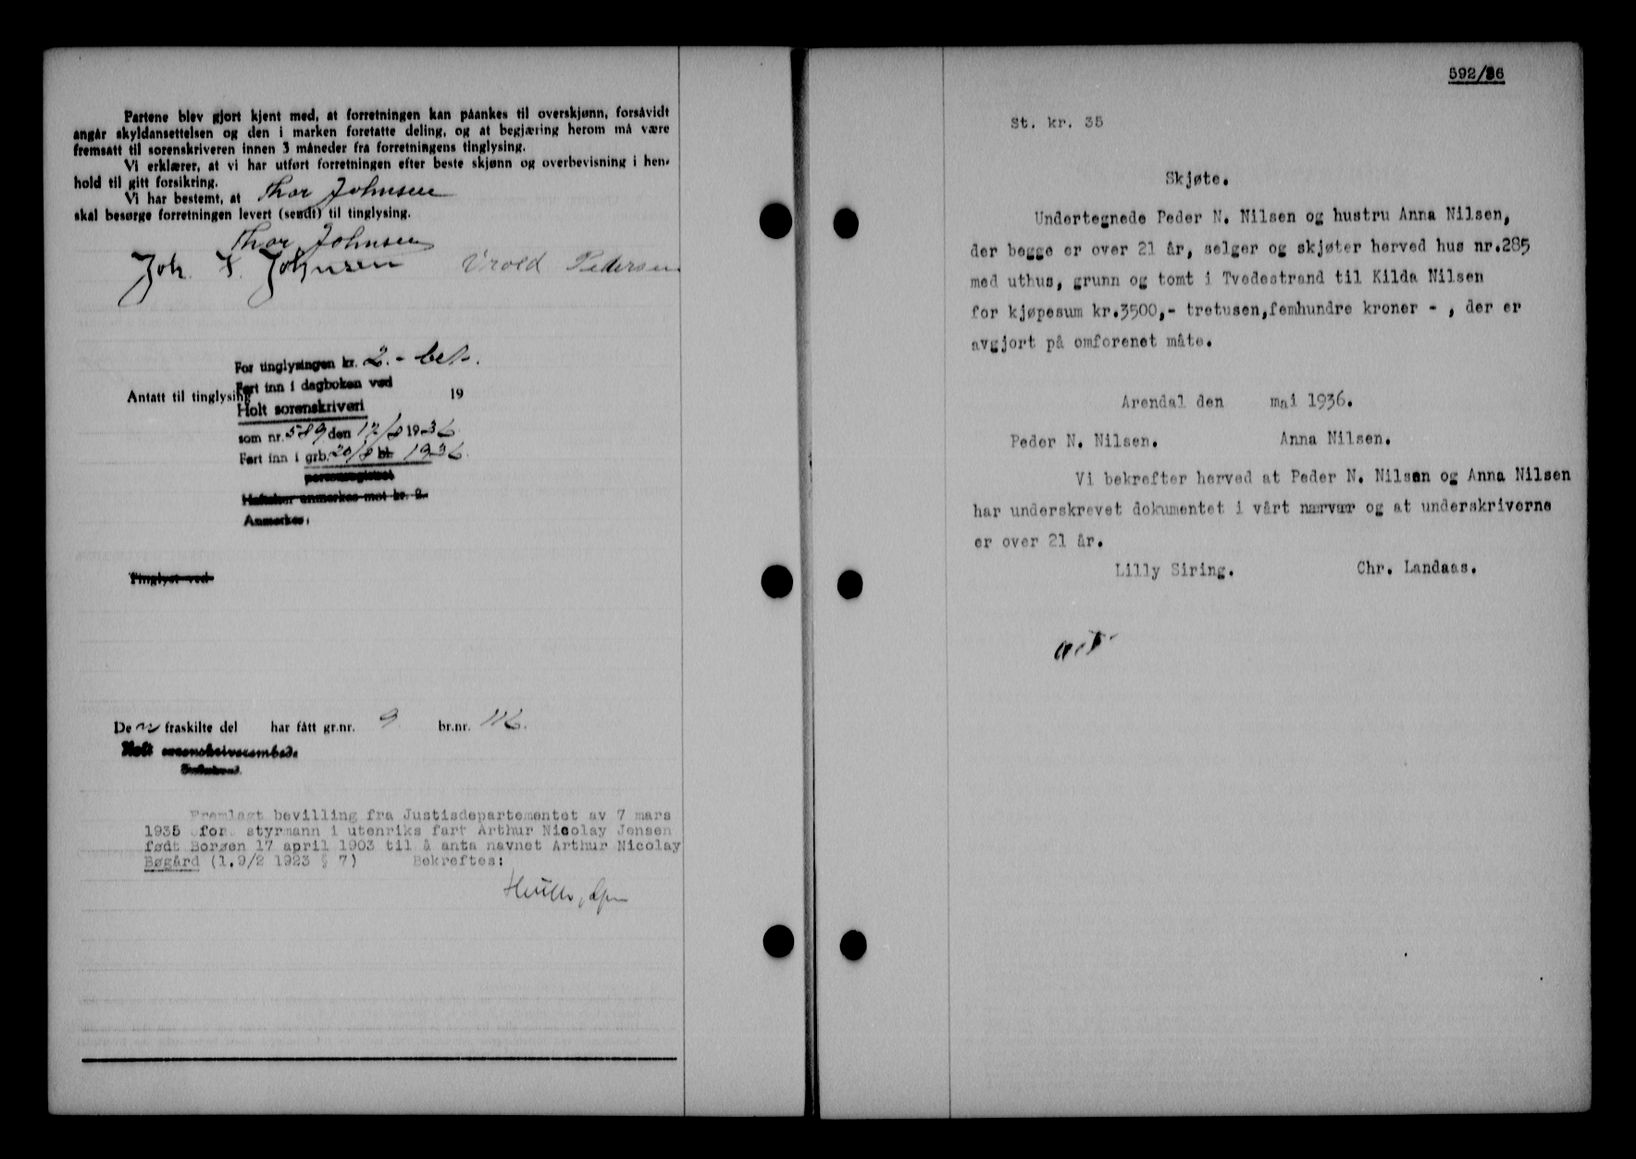 Partene blev gjort kjent med, at forretningen kan påankes til overskjønn, forsåvidt
angår skyldansettelsen og den i marken foretatte deling, og at begjæring herom må være
fremsatt til sorenskriveren innen 3 måneder fra forretningens tinglysing.
Vi erklærer, at vi har utført forretningen efter beste skjønn og overbevisning i hen-
hold til gitt forsikring.
Vi har bestemt, at Thor Johnsen
skal besørge forretningen levert (sendt) til tinglysing.
Thor Johnsen
Joh. Johnsen Pedersen
For tinglysingen kr. 2.- bet.
Ført inn i dagboken ved
Antatt til tinglysing 19
Holt sorenskriveri
som nr. 589 den 17/8 1936
Ført inn i grb. 20/8 bl. 1936.
personregistret
Heftelser anmerkes mot kr. 2.
Anmerkes:
Tinglyst ved
De n fraskilte del har fått gr.nr. 9 br.nr. 116.
Holt sorenskriverembede
Fremlagt bevilling fra Justisdepartementet av 7 mars
1935 for styrmann i utenriks fart Arthur Nicolay Jensen
født Borgen 17 april 1903 til å anta navnet Arthur Nicolay
Bøgård (l.9/2 1923 § 7) Bekreftes:
592/36
St. kr. 35
Skjøte.
Undertegnede Peder N. Nilsen og hustru Anna Nilsen,
der begge er over 21 år, selger og skjøter herved hus nr.285
med uthus, grunn og tomt i Tvedestrand til Kilda Nilsen
for kjøpesum kr.3500,- tretusen,femhundre kroner - , der er
avgjort på omforenet måte.
Arendal den mai 1936.
Peder N. Nilsen. Anna Nilsen.
Vi bekrefter herved at Peder N. Nilsen og Anna Nilsen
har underskrevet dokumentet i vårt nærvær og at underskriverne
er over 21 år.
Lilly Siring. Chr. Landaas.